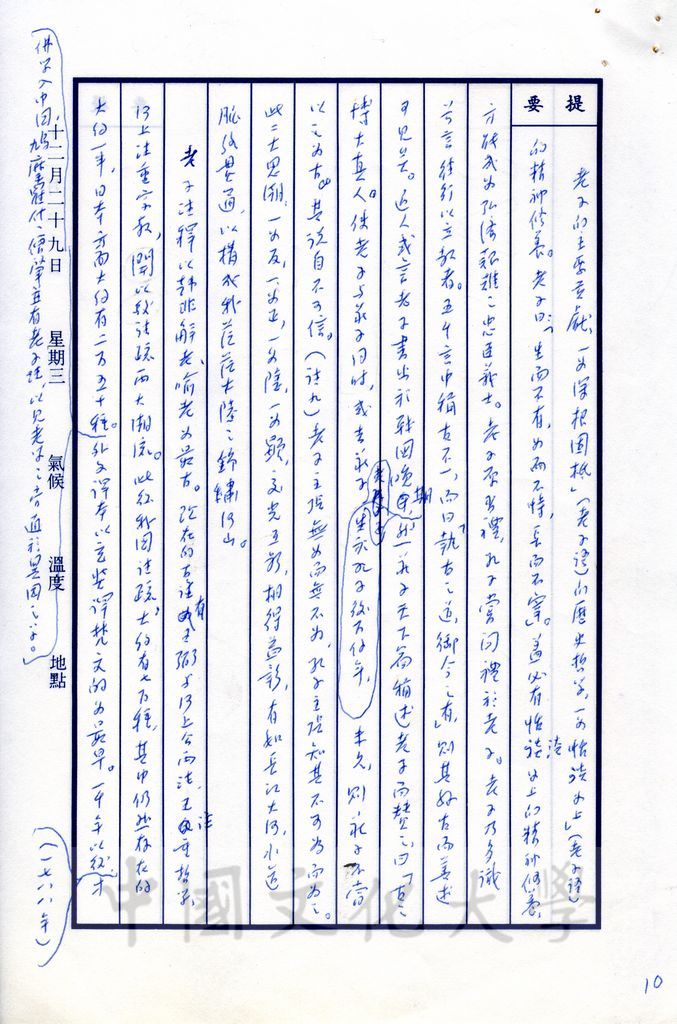 提要
老子的主要貢獻,一為深根固柢」(老子語)的歷史哲學,一為恬淡為上」(老子語)
的精神修養。老子曰:「生而不有,為而不恃,長而不宰」。蓋必有恬淡為上的精神修養,
方能成為弘濟艱難之忠臣義士。老子深習禮,孔子嘗問禮於老子。老子乃多識
前言往行以立教者。五千言中稱古不一,而曰「執古之道,御今之有」則其好古而善述
可見矣。近人或言老子書出於戰國晚期,然莊子天下篇稱述老子而贊之曰「古之
博大真人。使老子與莊子同時,或去莊子 未久,則莊子不當
老子 孔子後百餘年,
以之為古。其說自不可信。(註九)老子主張無為而無不為,孔子主張知其不可為而為之。
此二大思潮,一為反,一為正,一為陰,一為顯,交光互影,相得益彰,有如長江大河,水道
脈絡貫通,以構成我茫茫大陸之錦繡河山。
老子注釋以韓非解老、喻老為最古。現在的古註有王弼與河上公兩注,王注重哲學,
河上注重宗教,開以後註疏兩大潮流。此後我國註疏,大約有七百種,其中仍然存在的
大約一半,日本方面大約有二百五十種。外文譯本以玄奘譯梵文的為最早。一千年以後,才
(一七八八年)
佛學入中國,鳩摩羅什、僧肇並有老子注,以見老學之旁通於異國之學。」
十二月二十九日 星期三 氣候 溫度 地點
中國文化大學
10